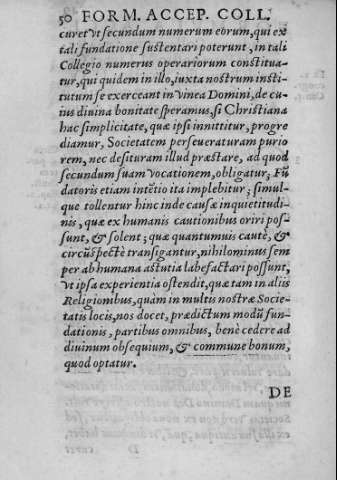 50 FORM. ACCEP. COLL.
curet vt secundum numerum eorum, qui ex
tali fundatione sustentari poterunt, in tali
Collegio numerus operariorum constitua-
tur, qui quidem in illo, iuxta nostrum insti-
tutum se exerceant in vinea Domini, de cu-
ius diuina bonitate speramus, si Christiana
hac simplicitate, quæ ipsi innititur, progre
diamur, Societatem perseueraturam purio
rem, nec desituram illud præstare, ad quod
secundum suam vocationem, obligatur; Fū
datoris etiam intētio ita implebitur; simul-
que tollentur hinc inde causæ inquietitudi-
nis, quæ ex humanis cautionibus oriri pos-
sunt, & solent; quæ quantumuis cautè, &
circūspectè transigantur, nihilominus sem
per ab humana astutia labefactari possunt,
vt ipsa experientia ostendit, quæ tam in aliis
Religionibus, quàm in multis nostræ Socie-
tatis locis, nos docet, prædictum modū fun-
dationis, partibus omnibus, benè cedere ad
diuinum obsequium, & commune bonum,
quod optatur.
DE